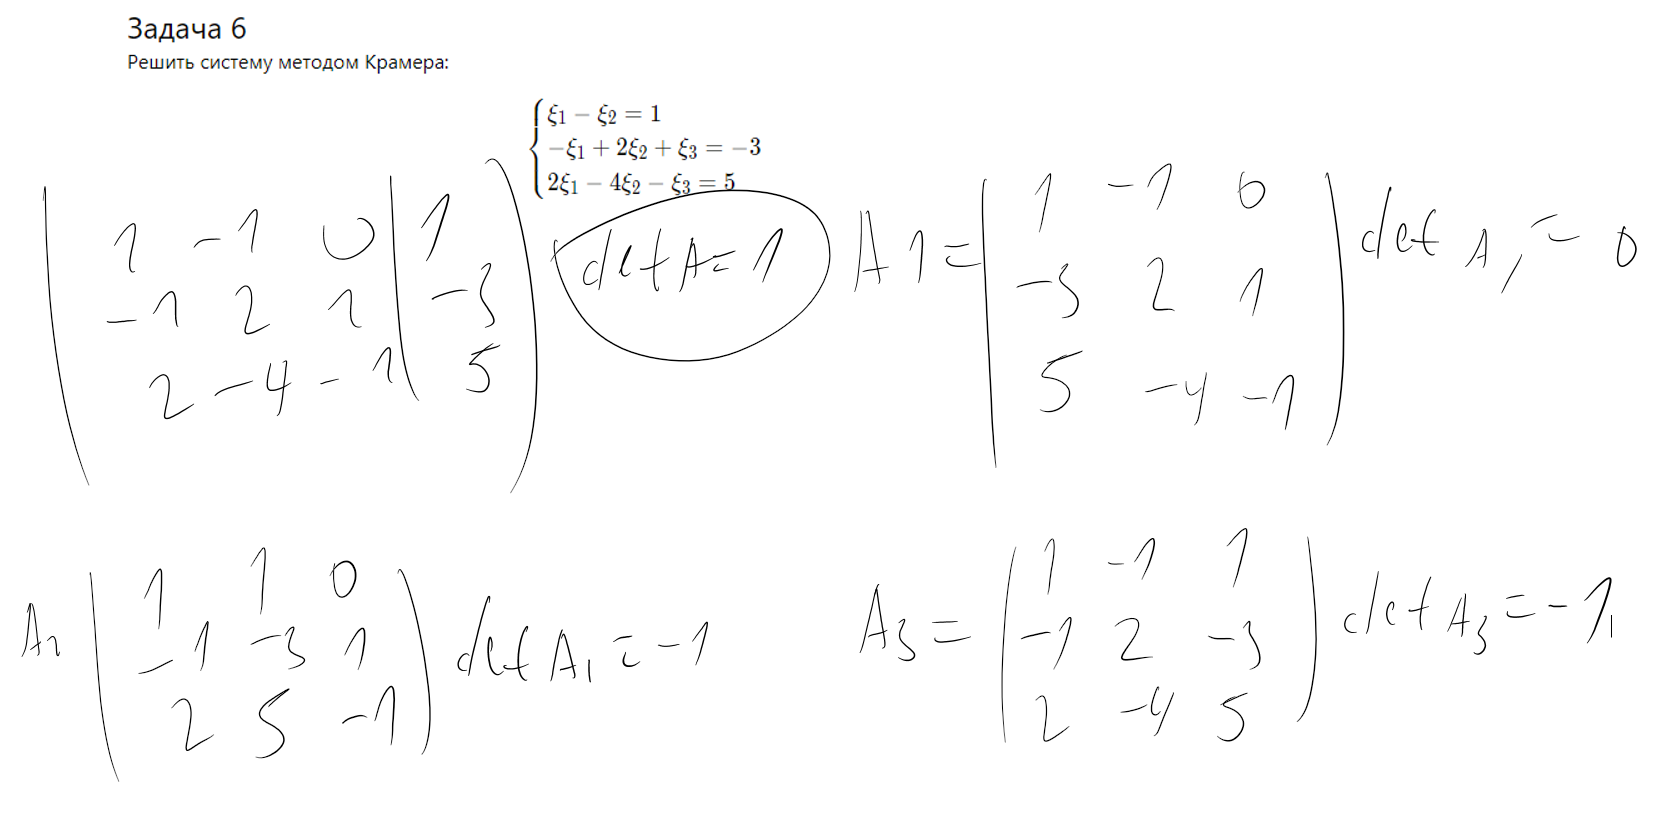 Задача 6
Решить систему методом Крамера:
ξ1 − ξ2 = 1
−ξ1 + 2ξ2 + ξ3 = −3
2ξ1 − 4ξ2 − ξ3 = 5
1 -1 0 | 1
-1 2 1 | -3
2 -4 -1 | 5
det A = 1
A1 =
1 -1 0
-3 2 1
5 -4 -1
det A1 = 0
A2
1 1 0
-1 -3 1
2 5 -1
det A1 = -1
A3 =
1 -1 1
-1 2 -3
2 -4 5
det A3 = -1